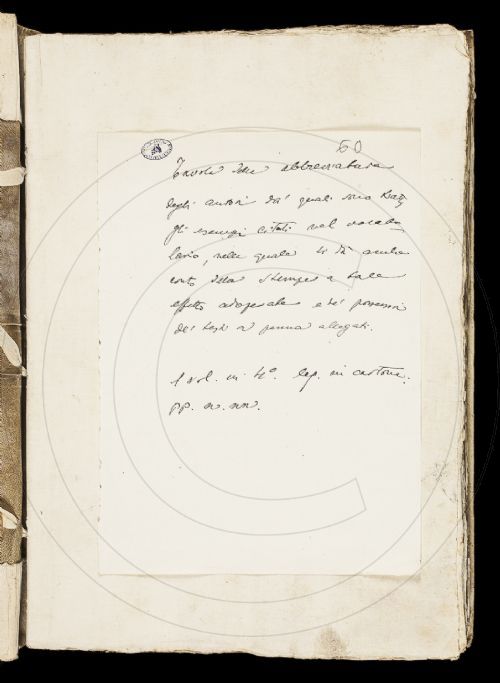 50
Tavola delle abbreviature
degli autori da' quali sono tratti
gli esempi citati nel vocabo
lario, nella quale si dà anche
conto della stampe a tale
effetto adoperate e de' possessori
de' testi a penna allegati.
1 vol. in 4º. leg. in cartone.
pp. n. nn.